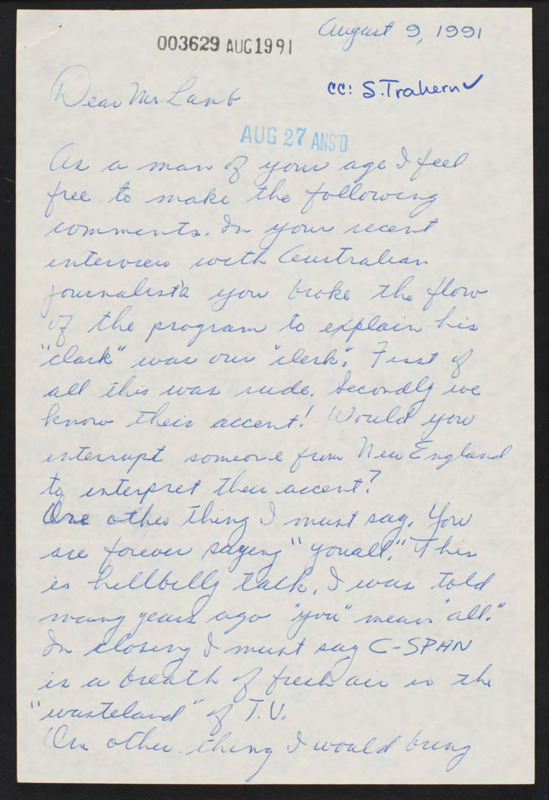 August 9, 1991
003629 AUG 1991
Dear Mr Lamb
cc: S. Trahern ✓
AUG 27 ANS'D
As a man of your age I feel
free to make the following
comments. In your recent
interview with Australian
journalists you broke the flow
of the program to explain his
"clark" was our "clerk". First of
all this was rude. Secondly we
know their accent! Would you
interrupt someone from New England
to interpret their accent?
One other thing I must say. You
are forever saying "youall." This
is hillbilly talk. I was told
many years ago "you" means "all."
In closing I must say C-SPAN
is a breath of fresh air in the
"wasteland" of T.V.
One other thing I would bring